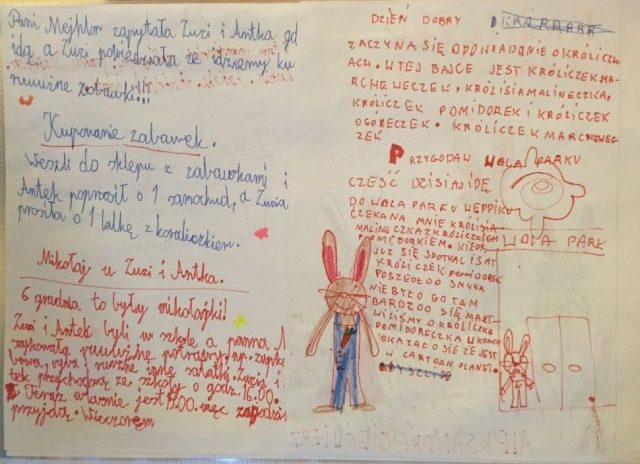 Pani Mejhlor zapytała Zuzi i Antka gd
idą a Zuzi powiedziała że idziemy ku
różne zabawki!!!
Kupowanie zabawek.
Weszli do sklepu z zabawkami i
Antek poprosił o 1 samochud, a Zuzia
prosiła o 1 lalkę z koralczkiem.
Mikołaj u Zuzi i Antka.
6 grudnia to były mikołajki!
Zuzi i Antek byli w szkole a panna
potrawy, np.
ryba i
tek przychodzą ze szkoły o godz. 16.00.
Teraz właśnie jest 15.00. więc za godzi
przyjdą. Wieczorem
DZIEŃ DOBRY
ZACZYNA SIĘ OPOWIADANIE O KRÓLICZK
ACH. W TEJ BAJCE JEST KRÓLICZEK MA-
RCHEWECZEK, KRÓLISIA MALINECZKA,
KRÓLICZEK POMIDOREK I KRÓLICZEK
OGÓRECZEK. KRÓLICZEK MARCHEWEC
ZEK
PRZYGODA W WALA PARKU
CZEŚĆ DZISIAJ IDĘ
DO WALA PARKU
CZEKA NA MNIE KRÓLISIA
MALINECZKA Z KRÓLICZKIEM
POMIDORKIEM. KIEDY
JUŻ SIĘ SPOTKALIŚMY
KRÓLICZEK POMIDOREK
POSZEDŁ DO
NIE BYŁO GO TAM
BARDZO SIĘ MART-
WILIŚMY O KRÓLICZKA
POMIDORECZKA W KOŃCU
OKAZAŁO SIĘ ŻE JEST
W CARTOAN PLANET.
WALA PARK